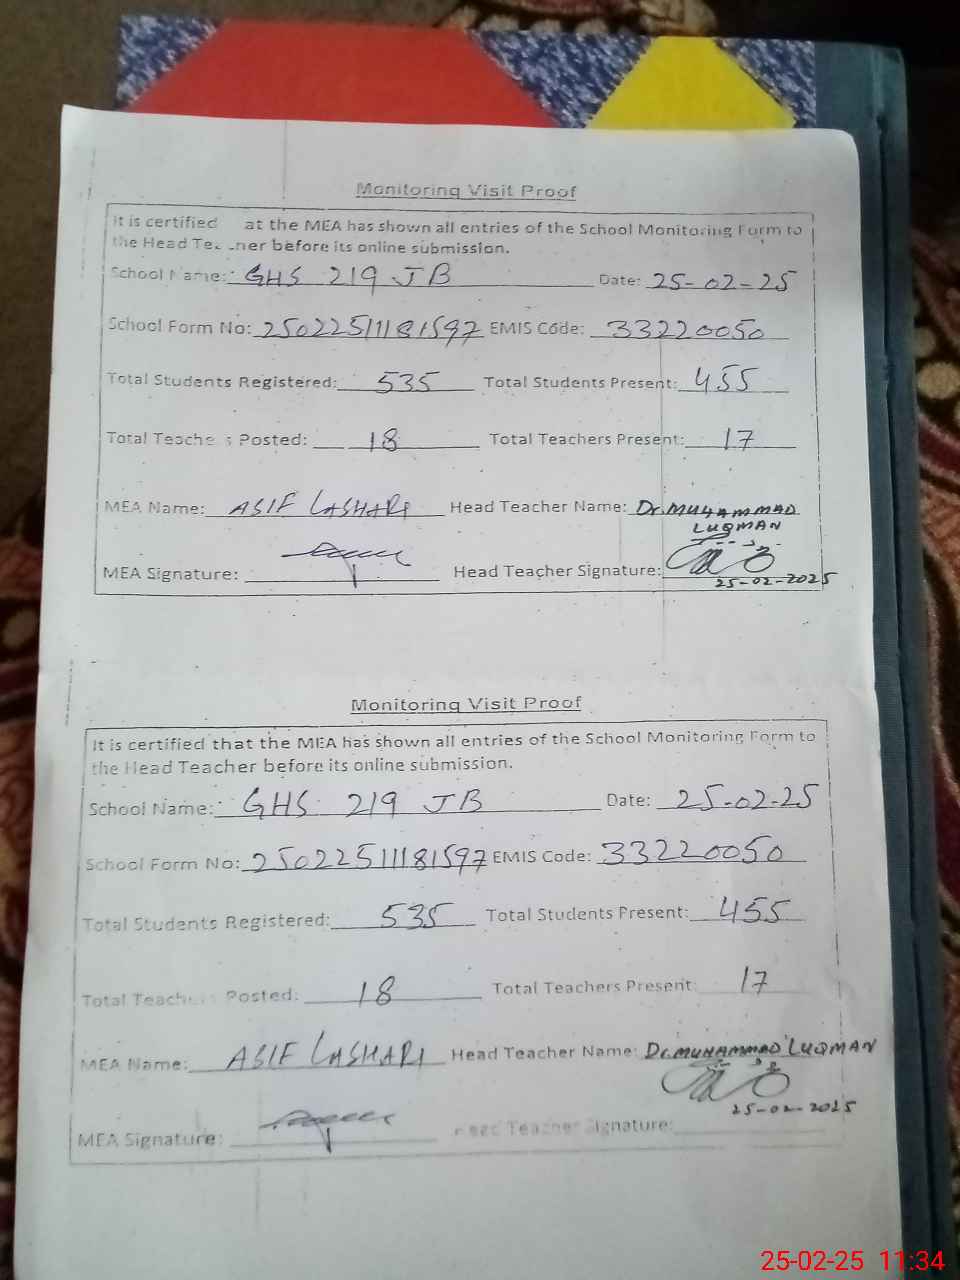 Monitoring Visit Proof
It is certified at the MEA has shown all entries of the School Monitoring Form to
the Head Teacher before its online submission.
School Name: GHS 219 JB Date: 25-02-25
School Form No: 25022511181597 EMIS Code: 33220050
Total Students Registered: 535 Total Students Present: 455
Total Teachers Posted: 18 Total Teachers Present: 17
MEA Name: ASIF LASHARI Head Teacher Name: Dr. MUHAMMAD
LUQMAN
MEA Signature: Head Teacher Signature:
25-02-2025
Monitoring Visit Proof
It is certified that the MEA has shown all entries of the School Monitoring Form to
the Head Teacher before its online submission.
School Name: GHS 219 JB Date: 25-02-25
School Form No: 25022511181597 EMIS Code: 33220050
Total Students Registered: 535 Total Students Present: 455
Total Teachers Posted: 18 Total Teachers Present: 17
MEA Name: ASIF LASHARI Head Teacher Name: Dr. MUHAMMAD LUQMAN
25-02-2025
MEA Signature: Head Teacher Signature:
25-02-25 11:34